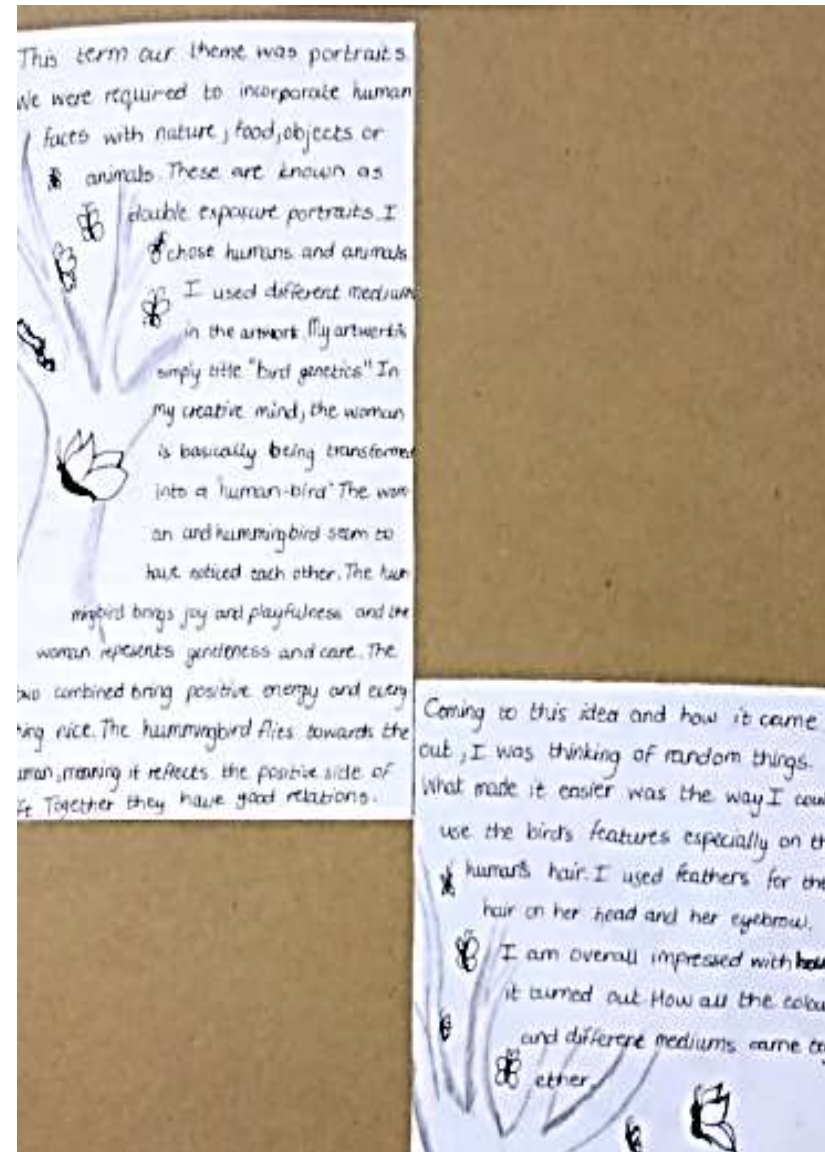 This term our theme was portraits.
We were required to incorporate human
faces with nature, food, objects or
animals. These are known as
double exposure portraits. I
chose humans and animals.
I used different medium
in the artwork. My artwork is
simply title "bird genetics" In
my creative mind, the woman
is basically being transformed
into a "human-bird" The wom
an and hummingbird seem to
have noticed each other. The hum
mingbird brings joy and playfulness and the
woman repesents gentleness and care. The
two combined bring positive energy and every
ing nice. The hummingbird flies towards the
uman, meaning it reflects the positive side of
Together they have good relations.
Coming to this idea and how it came
out, I was thinking of random things.
What made it easier was the way I coul
use the bird's features especially on th
human's hair. I used feathers for the
hair on her head and her eyebrow.
I am overall impressed with how
it turned out. How all the colou
and different mediums came tog
ether.